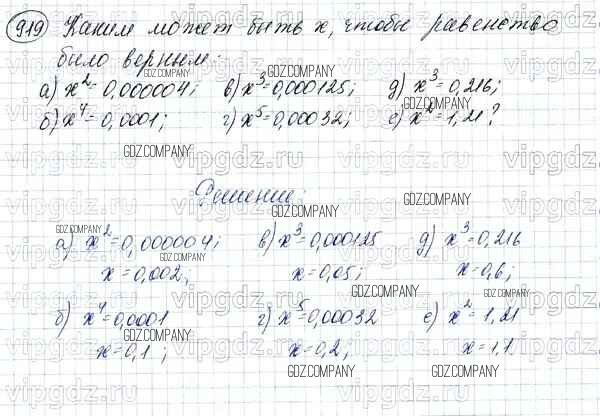 919 Каким может быть x, чтобы равенство
было верным:
а) x²=0,000004; в) x³=0,000125; д) x³=0,216;
б) x⁴=0,0001; г) x⁵=0,00032; е) x²=1,21?
Решение:
а) x²=0,000004; в) x³=0,000125 д) x³=0,216
x=0,002; x=0,05; x=0,6;
б) x⁴=0,0001 г) x⁵=0,00032 е) x²=1,21
x=0,1; x=0,2; x=1,1.
GDZ.COMPANY
vipgdz.ru